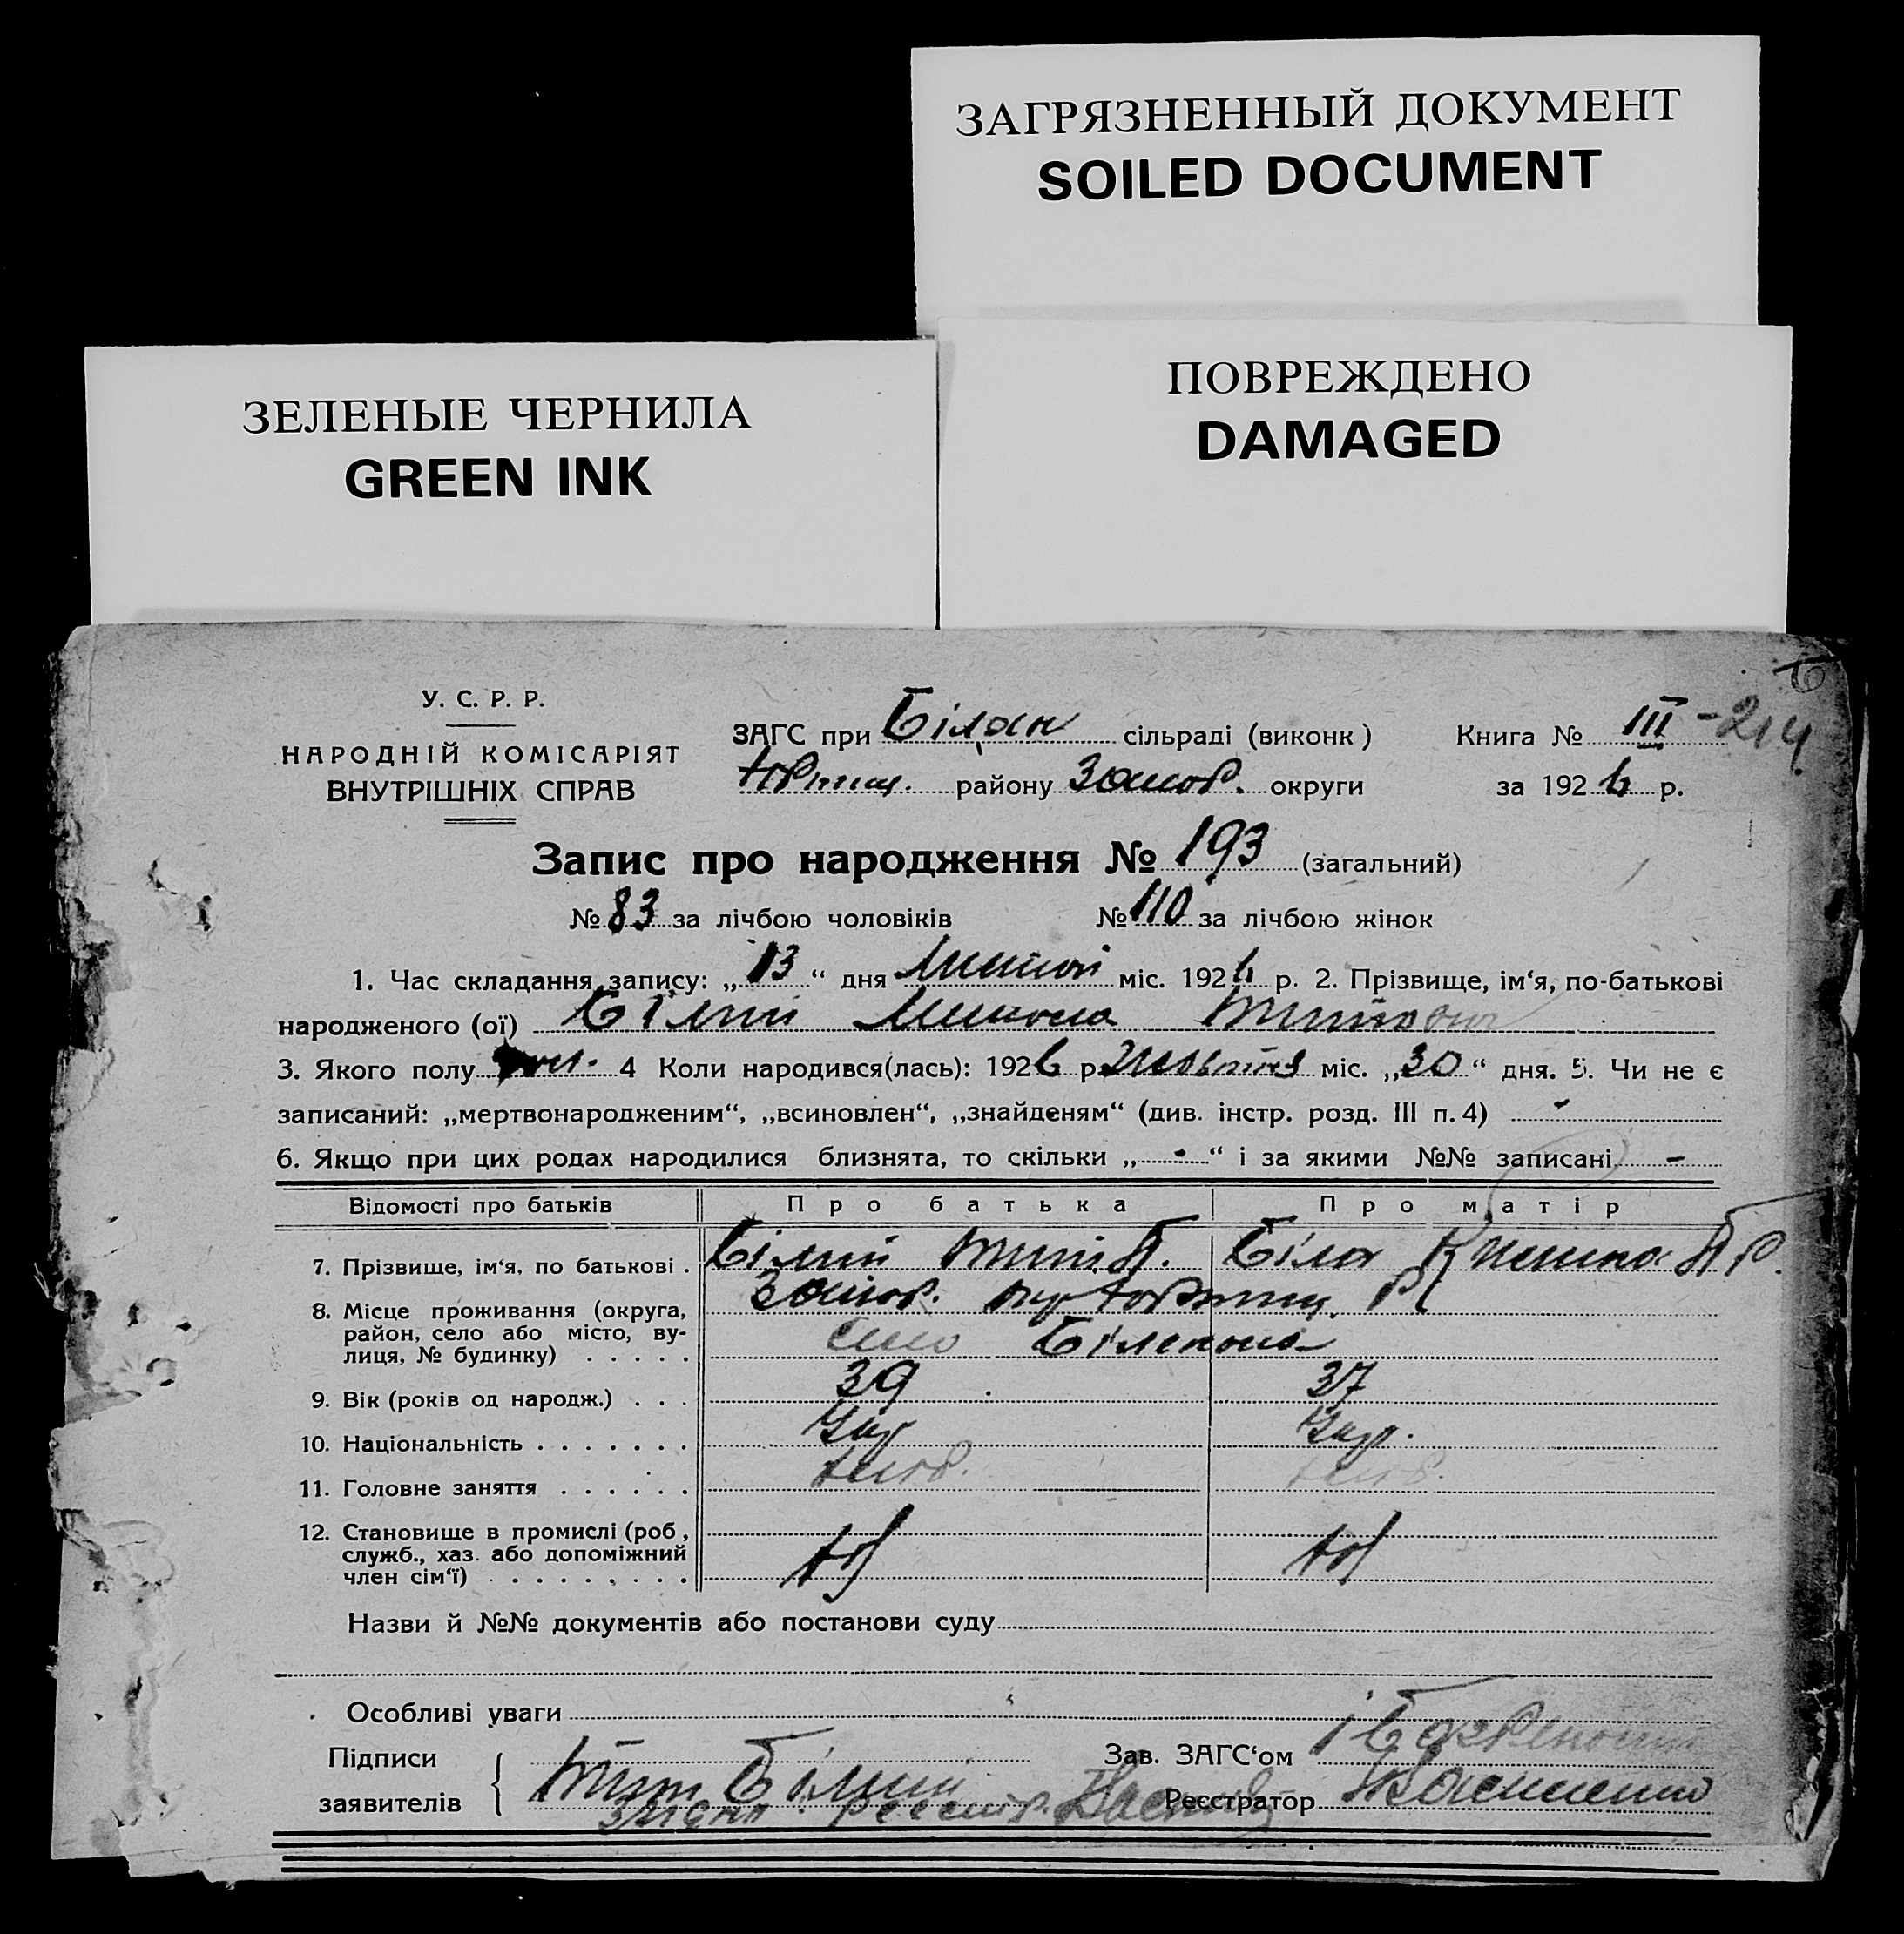 ЗАГРЯЗНЕННЫЙ ДОКУМЕНТ
SOILED DOCUMENT
ЗЕЛЕНЫЕ ЧЕРНИЛА
GREEN INK
ПОВРЕЖДЕНО
DAMAGED
У. С. Р. Р.
НАРОДНІЙ КОМІСАРІЯТ
ВНУТРІШНІХ СПРАВ
ЗАГС при сільраді (виконк) Книга № III - 214
району Запор. округи за 1926 р.
Запис про народження № 193 (загальний)
№ 83 за лічбою чоловіків № 110 за лічбою жінок
1. Час складання запису: „13“ дня міс. 1926 р. 2. Прізвище, ім‘я, по-батькові
народженого (ої) Білий Микола Титович
3. Якого полу чол. 4 Коли народився(лась): 1926 р. Жовтня міс. „30“ дня. 5. Чи не є
записаний: „мертвонародженим“, „всиновлен“, „знайденям“ (див. інстр. розд. III п. 4) -
6. Якщо при цих родах народилися близнята, то скільки „-“ і за якими №№ записані -
Відомості про батьків Про батька Про матір
7. Прізвище, ім‘я, по батькові . Білий Тит Біла
8. Місце проживання (округа, Запор. окр
район, село або місто, ву- село
лиця, № будинку) . . . . .
9. Вік (років од народж.) . . . 39 37
10. Національність . . . . . . . Укр Укр.
11. Головне заняття . . . . . . хліб. хліб.
12. Становище в промислі (роб,
служб., хаз. або допоміжний
член сім‘ї) . . . . . . . . .
Назви й №№ документів або постанови суду
Особливі уваги
Підписи Зав. ЗАГС‘ом
заявителів { Тит Білий Реєстратор